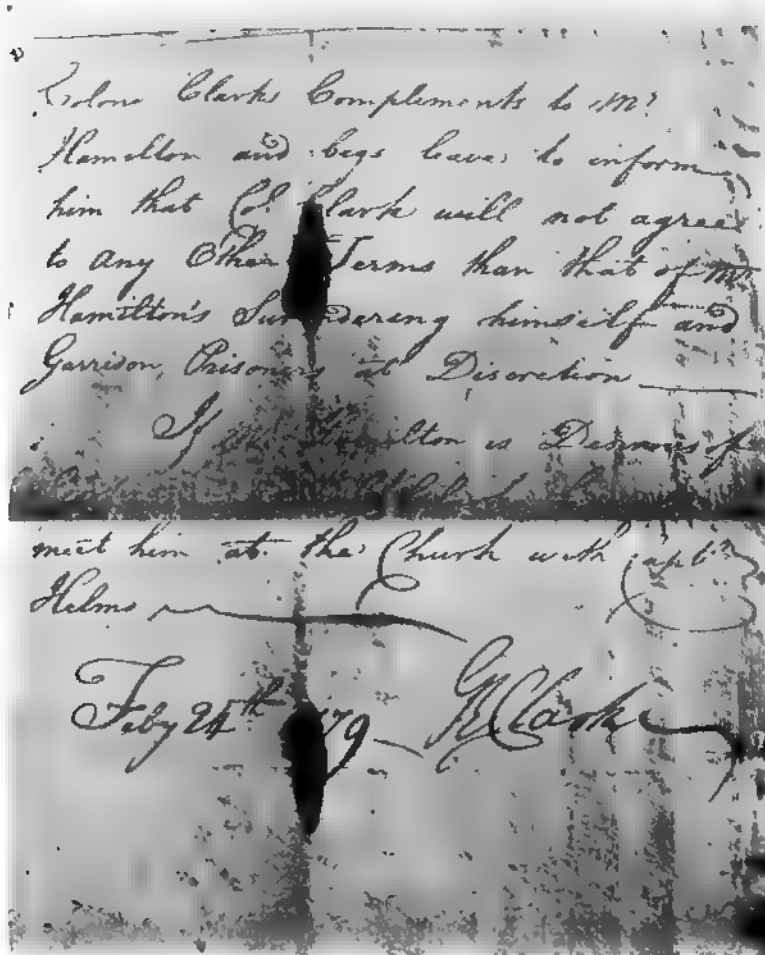 Colonl Clarks Complements to Mr
Hamilton and begs leave to inform
him that Col. Clark will not agree
to any Other Terms than that of Mr
Hamilton's Surendering himself and
Garrison, Prisoners at Discretion
If Mr Hamilton is Desirous of
meet him at the Church with Capt
Helms
Feby 24th 79 GR Clark